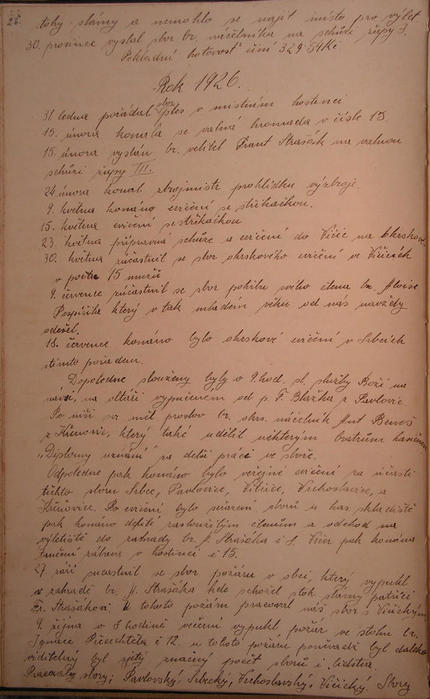 toby slámy a nemohlo se najít místo pro výlet
30. prosince vyslal sbor br. náčelníka na schůzi župy
Pokladní hotovost činí 329.54 Kč
Rok 1926.
31. ledna pořádal sbor ples v místním hostinci
15. února konala se valná hromada v čísle 15
15. února vyslán br. velitel Frant Strašák na valnou
schůzi župy III.
24. února konal strojmistr prohlídku výzbroje.
9. května konáno cvičení se stříkačkou.
15. května cvičení se stříkačkou
23. května přípravná schůze a cvičení do Víčic na
30. května zúčastnil se sbor okrskového cvičení ve
v počtu 15 mužů
9. července zúčastnil se sbor pohřbu svého člena br. Aloise
Pospíšila který v tak mladém věku od nás navždy
odešel.
18. července konáno bylo okrskové cvičení v Srbcích
s tímto pořadem.
Dopoledne slouženy byly v 9 hod. sl. služby Boží na
návsi, na oltáři vypůjčeném od p. F. Blažka z Pavlovic
Po mši sv. měl proslov br. okrs. náčelník Ant Beneš
z Křenovic, který také udělil některým bratrům
„Diplomy uznání" za delší práci ve sboru.
Odpoledne pak konáno bylo veřejné cvičení za účasti
těchto sborů Srbce, Pavlovice, Vrchoslavice, a
Po cvičení bylo
pak konáno defilé zasloužilým členům a odchod na
výletiště do zahrady br. J. Strašáka č 8. Večer pak konána
taneční zábava v hostinci č 15.
27. září zúčastnil se sbor požáru v obci, který vypukl
v zahradě br. J. Strašáka kde shořel stok slámy patřící
Fr. Strašákovi. U tohoto požáru pracoval náš sbor a
9. října v 8 hodině večerní vypukl požár ve stohu br.
Ignáce č 12. u tohoto požáru poněvadž byl daleko
viditelný byl zjetý značný počet sborů i
Pracovaly sbory: Pavlovský Srbecký, Vrchoslavský, Víčický Sbory